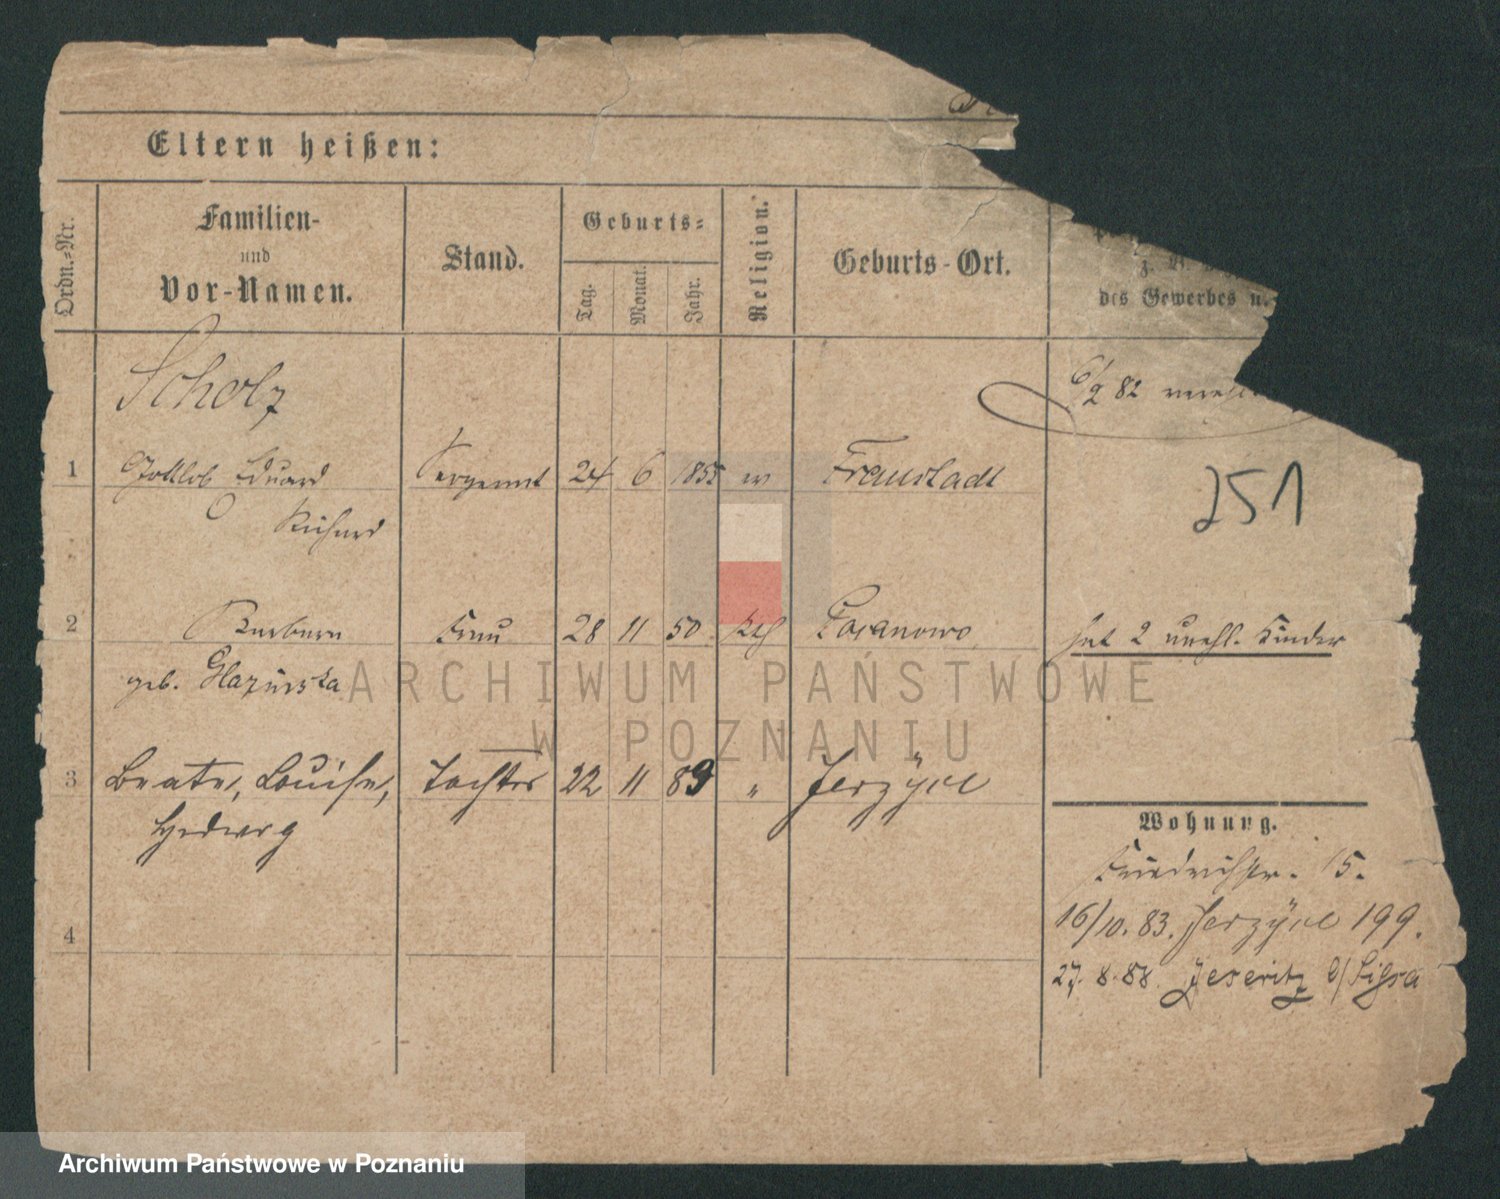 Eltern heißen:
Ordn.-Nr.
Familien-
und
Vor-Namen.
Stand.
Geburts-
Tag.
Monat.
Jahr.
Religion.
Geburts-Ort.
des Gewerbes u.
Scholz
6/2 82
1 Gottlob Eduard Sergeant 24 6 1855 ev Fraustadt
Richard
251
2 Barbara Frau 28 11 50 kth Posanowo hat 2 unehl. Kinder
geb. Glazinska
3 Beate, Louise, Tochter 22 11 89 " Jerzyce
Hedwig
Wohnung.
Friedrichstr. 15.
16/10. 83. Jerzyce 199.
4
27. 8. 88 Jeseritz b/
ARCHIWUM PAŃSTWOWE
W POZNANIU
Archiwum Państwowe w Poznaniu